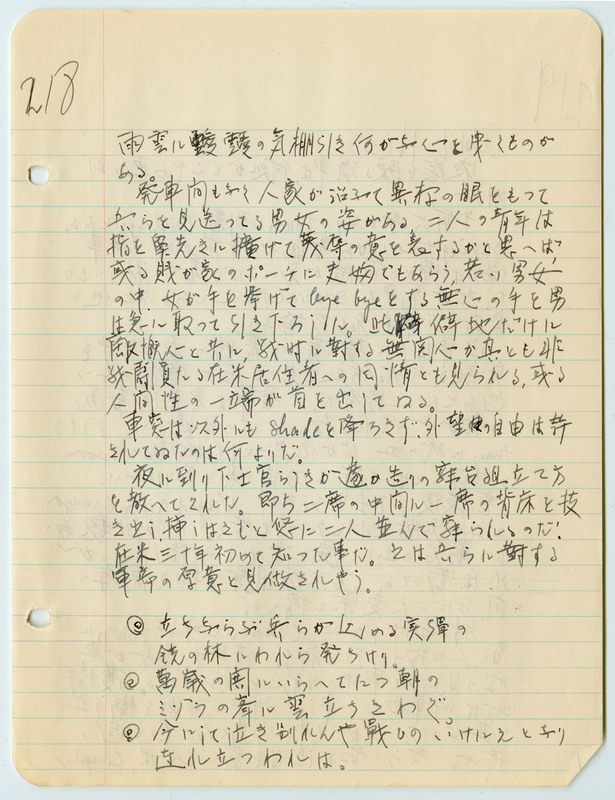 218
雨雲に靉靆の気棚引き何がなし心を曳くものが
ある。
発車間もなく人家が沿ふて異様の眼をもつて
吾らを見送つてる男女の姿がある 二人の青年は
指を鼻先きに擴げて侮辱の意を表するかと思へば、
或る賎が家のポーチに夫婦でもあらう、若い男女
の中、女が手を挙げて bye bye をする無心の手を男
性急に取つて引き下ろした。此 僻地だけに
敵愾心と共に、戦時に對する無関心か真とも非
戦闘員たる在米居住者への同情とも見られる、或る
人間性の一端が首を出してゐる。
車窓は以外にも shade を降ろさず、外望の自由は許
されてゐたのは何よりだ。
夜に到り下士官らうきが 造りの寝台組立て方
を教へてくれた。即ち二席の中間に一席の背床を抜
き出し挿しはさむと悠に二人並んで寝られるのだ!
在米三十年初めて知つた事だ。之は吾らに對する
軍部の厚意と見做されやう。
◎ 立ちならぶ兵らが込める実弾の
銃の林にわれら発ちけり。
◎ 萬歳の聲にいらへてたつ朝の
ミゾラの峯に雲立ちさわぐ。
◎ 今にして泣き別れんや戰ひの いけにえとなり
連れ立つわれは。